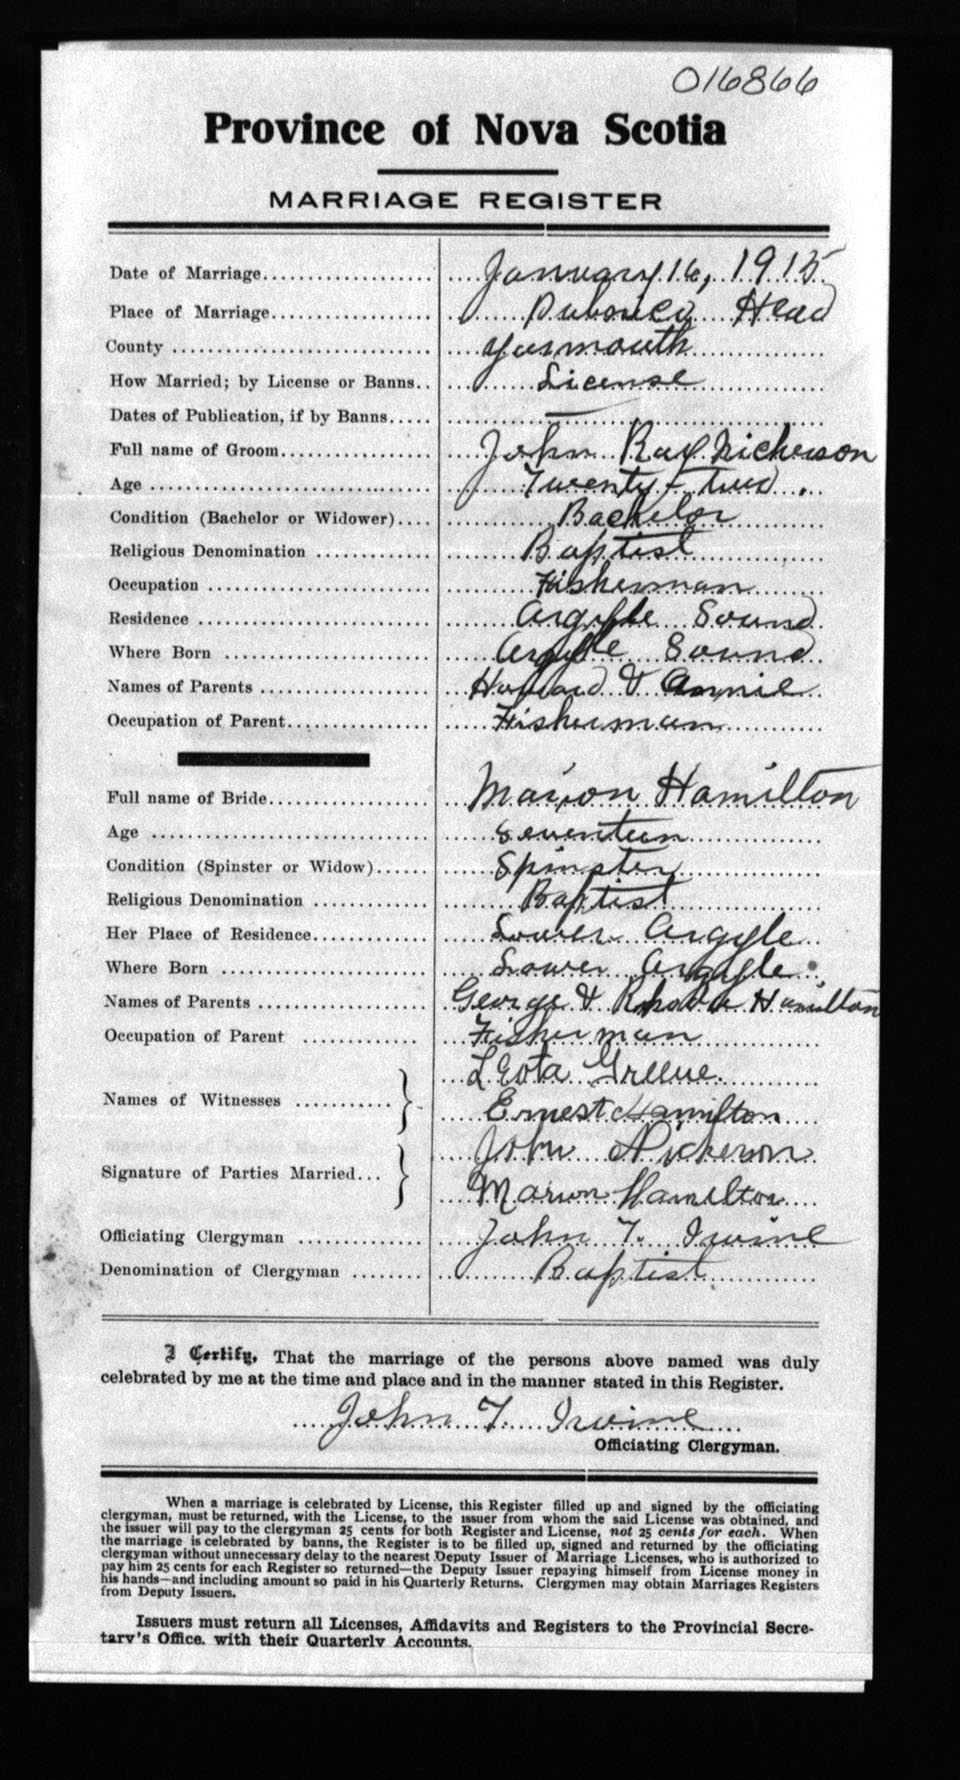 016866
Province of Nova Scotia
MARRIAGE REGISTER
Date of Marriage.................... January 16, 1915
Place of Marriage................... Pubnico Head
County .............................. Yarmouth
How Married; by License or Banns.. License
Dates of Publication, if by Banns..... —
Full name of Groom.................. John Ray Nickerson
Age ................................. Twenty-two.
Condition (Bachelor or Widower).... Bachelor
Religious Denomination .............. Baptist
Occupation .......................... Fisherman
Residence ........................... Argyle Sound
Where Born ......................... Argyle Sound
Names of Parents .................... Howard & Annie
Occupation of Parent................. Fisherman
Full name of Bride................... Marion Hamilton
Age ................................. Seventeen
Condition (Spinster or Widow)...... Spinster
Religious Denomination .............. Baptist
Her Place of Residence.............. Lower Argyle
Where Born ......................... Lower Argyle
Names of Parents .................... George & Rhoda Hamilton
Occupation of Parent .............. Fisherman
Leota Greene
Names of Witnesses ...........
Ernest Hamilton
John Nickerson
Signature of Parties Married...
Marion Hamilton
Officiating Clergyman ............... John T. Irvine
Denomination of Clergyman ........ Baptist
I Certify, That the marriage of the persons above named was duly
celebrated by me at the time and place and in the manner stated in this Register.
John T. Irvine
Officiating Clergyman.
When a marriage is celebrated by License, this Register filled up and signed by the officiating
clergyman, must be returned, with the License, to the issuer from whom the said License was obtained, and
the issuer will pay to the clergyman 25 cents for both Register and License, not 25 cents for each. When
the marriage is celebrated by banns, the Register is to be filled up, signed and returned by the officiating
clergyman without unnecessary delay to the nearest Deputy Issuer of Marriage Licenses, who is authorized to
pay him 25 cents for each Register so returned—the Deputy Issuer repaying himself from License money in
his hands—and including amount so paid in his Quarterly Returns. Clergymen may obtain Marriages Registers
from Deputy Issuers.
Issuers must return all Licenses, Affidavits and Registers to the Provincial Secre-
tary's Office, with their Quarterly Accounts.